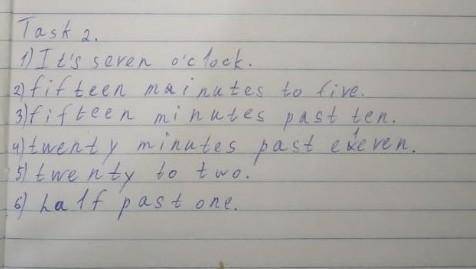 Task 2.
1) It's seven o'clock.
2) fifteen mainutes to five.
3) fifteen minutes past ten.
4) twenty minutes past eleven.
5) twenty to two.
6) half past one.